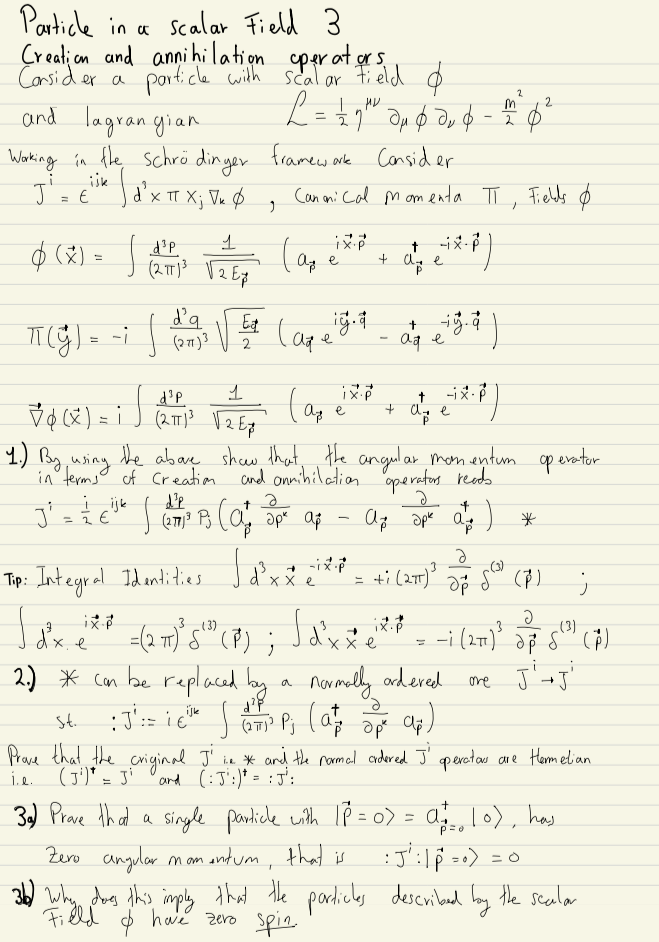 Particle in a scalar Field 3
Creation and annihilation operators
Consider a particle with scalar field ϕ
and lagrangian ℒ = 1/2 η^{μν} ∂_μ ϕ ∂_ν ϕ - m²/2 ϕ²
Working in the Schrödinger framework Consider
J^i = ϵ^{ijk} ∫ d³x π x_j ∇_k ϕ , Canonical momenta Π, Fields ϕ
ϕ(x⃗) = ∫ d³p/(2π)³ 1/√(2E_p⃗) (a_p⃗ e^{i x⃗·p⃗} + a†_p⃗ e^{-i x⃗·p⃗})
Π(y⃗) = -i ∫ d³q/(2π)³ √(E_q⃗/2) (a_q⃗ e^{i y⃗·q⃗} - a†_q⃗ e^{-i y⃗·q⃗})
∇⃗ϕ(x⃗) = i ∫ d³p/(2π)³ 1/√(2E_p⃗) (a_p⃗ e^{i x⃗·p⃗} + a†_p⃗ e^{-i x⃗·p⃗})
1.) By using the above show that the angular momentum operator
in terms of Creation and annihilation operators reads
J^i = i/2 ϵ^{ijk} ∫ d³p/(2π)³ P_j (a†_p⃗ ∂/∂p^k a_p⃗ - a_p⃗ ∂/∂p^k a†_p⃗) *
Tip: Integral Identities ∫ d³x x⃗ e^{-i x⃗·p⃗} = +i (2π)³ ∂/∂p⃗ δ^{(3)}(p⃗) ;
∫ d³x e^{i x⃗·p⃗} = (2π)³ δ^{(3)}(p⃗) ; ∫ d³x x⃗ e^{i x⃗·p⃗} = -i (2π)³ ∂/∂p⃗ δ^{(3)}(p⃗)
2.) * can be replaced by a normally ordered one J^i → J^i
st. :J^i: = i ϵ^{ijk} ∫ d³p/(2π)³ P_j (a†_p⃗ ∂/∂p^k a_p⃗)
Prove that the original J^i i.e * and the normal ordered J^i operators are Hermetian
i.e. (J^i)† = J^i and (:J^i:)† = :J^i:
3a) Prove that a single particle with |p⃗=0> = a†_{p⃗=0} |0>, has
Zero angular momentum, that is :J^i:|p⃗=0> = 0
3b) Why does this imply that the particles described by the scalar
Field ϕ have zero spin.